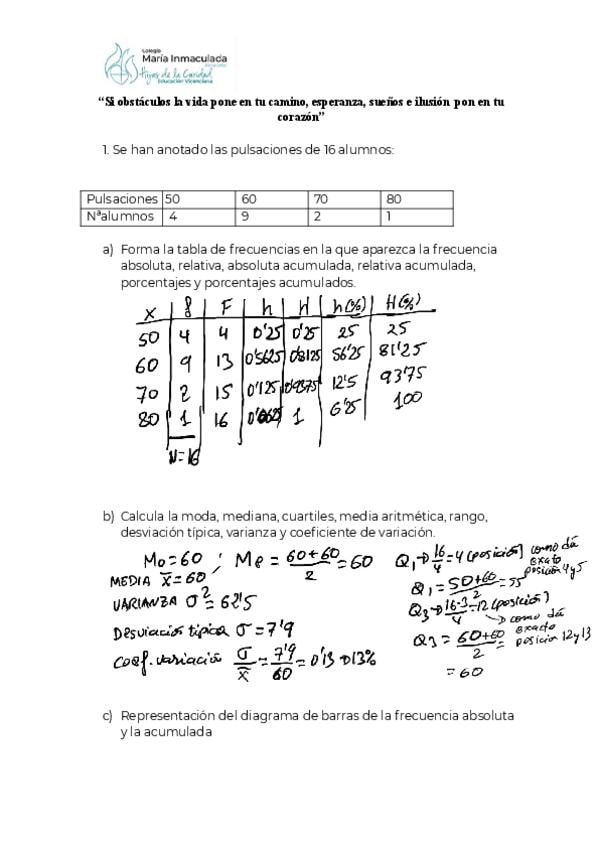 Colegio
María Inmaculada
Hijas de la Caridad
Educación Vicenciana
“Si obstáculos la vida pone en tu camino, esperanza, sueños e ilusión pon en tu
corazón”
1. Se han anotado las pulsaciones de 16 alumnos:
Pulsaciones 50 60 70 80
Nªalumnos 4 9 2 1
a) Forma la tabla de frecuencias en la que aparezca la frecuencia
absoluta, relativa, absoluta acumulada, relativa acumulada,
porcentajes y porcentajes acumulados.
x f F h H h(%) H(%)
50 4 4 0'25 0'25 25 25
60 9 13 0'5625 0'8125 56'25 81'25
70 2 15 0'125 0'9375 12'5 93'75
80 1 16 0'0625 1 6'25 100
N=16
b) Calcula la moda, mediana, cuartiles, media aritmética, rango,
desviación típica, varianza y coeficiente de variación.
Mo=60 ; Me = 60+60/2 = 60
MEDIA x̄=60
VARIANZA σ²=62'5
Desviación típica σ=7'9
Coef. variación σ/x̄ = 7'9/60 = 0'13 → 13%
Q1 → 16/4 = 4 (posición) como dá
exacto
posición 4 y 5
Q1 = 50+60/2 = 55
Q3 → 16·3/4 = 12 (posición)
→ como dá
exacto
posición 12 y 13
Q3 = 60+60/2 =
= 60
c) Representación del diagrama de barras de la frecuencia absoluta
y la acumulada